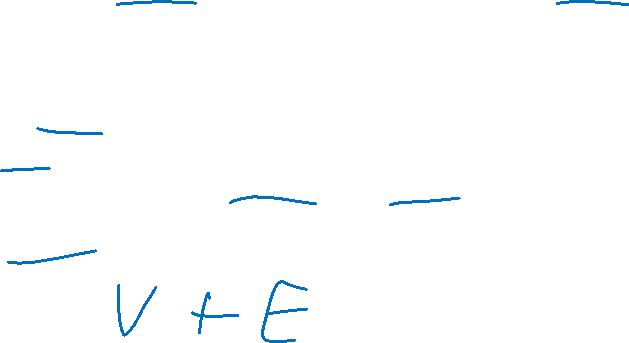 V + E